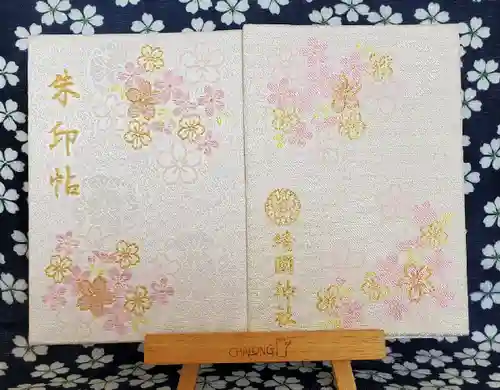 朱印帖
靖國神社